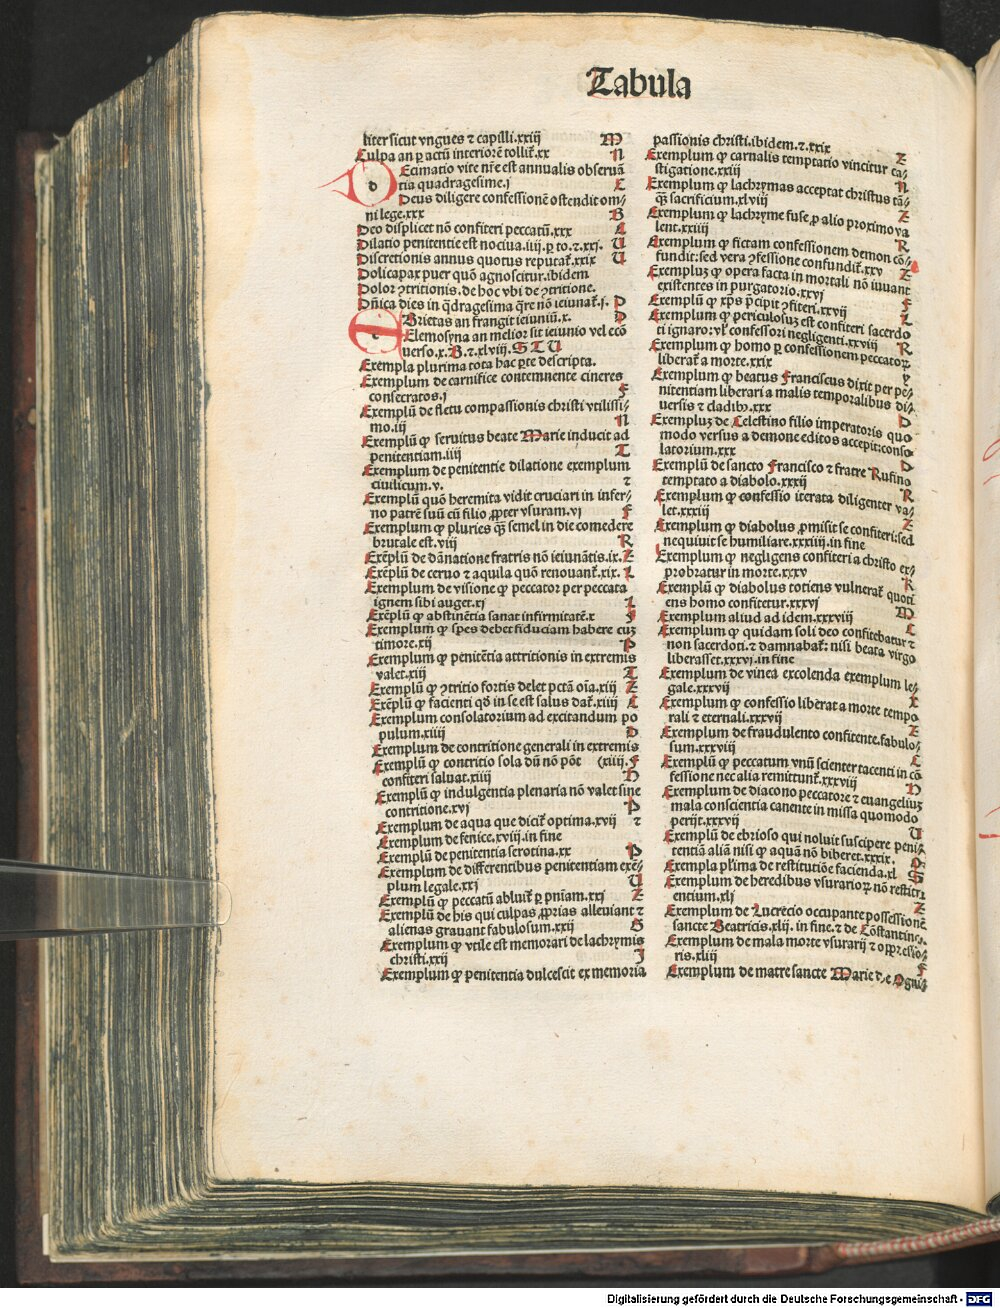 Tabula
liter sicut vngues ⁊ capilli.xxiij M
Culpa an ꝑ actū interiorē tollit᷑.xx N
Decimatio vite nr̄e est annualis obseruā
tia quadragesime.j C
Deus diligere confessionē ostendit om⸗
ni lege.xxx B
Deo displicet nō confiteri peccatū.xxx A
Dilatio penitentie est nociua.iiij.ꝑ to.⁊.xxj. U
Discretionis annus quotus reputat᷑.xxix U
Doli capax puer quō agnoscitur.ibidem
Dolor ꝯtritionis.de hoc vbi de ꝯtritione.
Dn̄ica dies in q̄dragesima q̄re nō ieiunat᷑.j. P
Ebrietas an frangit ieiuniū.x. D
Elemosyna an melior sit ieiunio vel ecō
uerso.x.B.⁊.xlviij.S T U
Exempla plurima tota hac ꝑte descripta.
Exemplum de carnifice contemnente cineres
consecratos.j F
Exemplū de fletu compassionis christi vtilissi⸗
mo.iij N
Exemplū ꝙ seruitus beate Marie inducit ad
penitentiam.iiij T
Exemplum de penitentie dilatione exemplum
ciuilicum.v. ⁊
Exemplū quō heremita vidit cruciari in infer⸗
no patrē suū cū filio ꝓpter vsuram.vj F
Exemplum ꝙ pluries q̄ȝ semel in die comedere
brutale est.viij R
Exēplū de dānatione fratris nō ieiunātis.ix. Z
Exēplū de ceruo ⁊ aquila quō renouant᷑.xix. L
Exemplum de visione ꝙ peccator per peccata
ignem sibi auget.xj L
Exēplū ꝙ abstinētia sanat infirmitatē.x F
Exemplum ꝙ spes debet fiduciam habere cuȝ
timore.xij P
Exemplum ꝙ penitētia attritionis in extremis
valet.xiij T
Exemplū ꝙ ꝯtritio fortis delet pctā oīa.xiij Z
Exēplū ꝙ facienti qd̄ in se est salus dat᷑.xiiij C
Exemplum consolatorium ad excitandum po
pulum.xiiij D
Exemplum de contritione generali in extremis
Exemplū ꝙ contritio sola dū nō pōt (xiiij. F
confiteri saluat.xiiij H
Exemplū ꝙ indulgentia plenaria nō valet sine
contritione.xvj P
Exemplum de aqua que dicit᷑ optima.xvij ⁊
Exemplum de fenice.xviij.in fine
Exemplū de penitentia serotina.xx P
Exemplum de differentibus penitentiam exē⸗
plum legale.xxj U
Exemplū ꝙ peccatū abluit᷑ ꝑ pn̄iam.xxj Z
Exemplū de his qui culpas ꝓprias alleuiant ⁊
alienas grauant fabulosum.xxij G
Exemplum ꝙ vtile est memorari de lachrymis
christi.xxij J
Exemplum ꝙ penitentia dulcescit ex memoria
passionis christi.ibidem.⁊.xxix
Exemplum ꝙ carnalis temptatio vincitur ca⸗ Z
stigatione.xxiij
Exemplum ꝙ lachrymas acceptat christus tā⸗ N
q̄ȝ sacrificium.xlviij
Exemplum ꝙ lachryme fuse ꝑ alio proximo va Z
lent.xxiiij
Exemplum ꝙ fictam confessionem demon cō⸗ R
fundit:sed vera ꝯfessione confundit᷑.xxv
Exempluȝ ꝙ opera facta in mortali nō iuuant Z
existentes in purgatorio.xxvj
Exemplū ꝙ xp̄s p̄cipit ꝯfiteri.xxvij F
Exemplum ꝙ periculosuȝ est confiteri sacerdo L
ti ignaro:vl᷑ confessori negligenti.xxviij
Exemplum ꝙ homo ꝑ confessionem peccatoꝝ R
liberat᷑ a morte.xxix
Exemplum ꝙ beatus Franciscus dixit per pe⸗ Y
nitentiam liberari a malis temporalibus di⸗
uersis ⁊ cladibȝ.xxx
Exempluȝ de Celestino filio imperatoris quo D
modo versus a demone editos accepit:conso
latorium.xxx
Exemplū de sancto Francisco ⁊ fratre Rufino D
temptato a diabolo.xxxij
Exemplum ꝙ confessio iterata diligenter va⸗ R
let.xxxiij
Exemplum ꝙ diabolus ꝓmisit se confiteri:sed Z
nequiuit se humiliare.xxxiiij.in fine
Exemplum ꝙ negligens confiteri a christo ex⸗
probratur in morte.xxxv
Exemplū ꝙ diabolus totiens vulnerat᷑ quoti R
ens homo confitetur.xxxvj
Exemplum aliud ad idem.xxxviij M
Exemplum ꝙ quidam soli deo confitebatur ⁊ C
non sacerdoti.⁊ damnabat᷑:nisi beata virgo
liberasset.xxxvj.in fine
Exemplum de vinea excolenda exemplum le⸗
gale.xxxvij
Exemplum ꝙ confessio liberat a morte tempo X
rali ⁊ eternali.xxxvij
Exemplum de fraudulento confitente.fabulo⸗ Z
sum.xxxviij
Exemplū ꝙ peccatum vnū scienter tacenti in cō C
fessione nec alia remittunt᷑.xxxviij
Exemplum de diacono peccatore ⁊ euangeliuȝ H
mala conscientia canente in missa quomodo
perijt.xxxvij
Exemplū de ebrioso qui noluit suscipere peni⸗ U
tentiā aliā nisi ꝙ aquā nō biberet.xxxix.
Exempla pl᷑ima de restitutiōe facienda.xl S
Exemplum de heredibus vsurarioꝝ nō restitu
entium.xlj
Exemplum de Lucrecio occupante possessionē Z
sancte Beatricis.xlij.in fine.⁊ de Cōstantino.
Exemplum de mala morte vsurarij ⁊ oppressio⸗
ris.xliij
Exemplum de matre sancte Marie de Ogni⸗ F
Digitalisierung gefördert durch die Deutsche Forschungsgemeinschaft - DFG